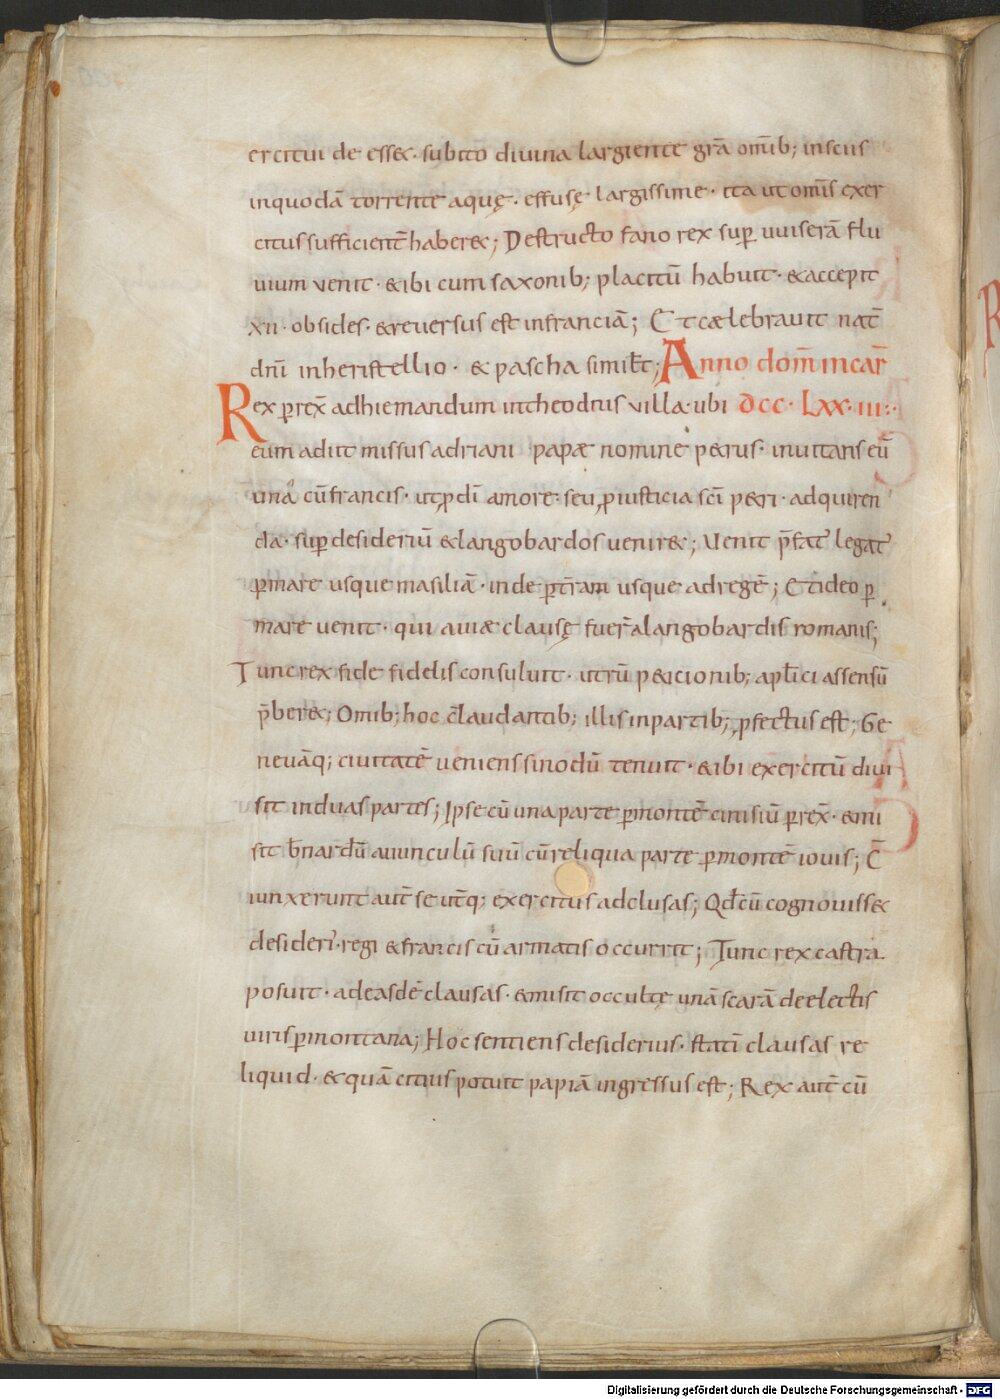 ercitui de esse&· subito diuina largiente grā om̄ib; inscus
inquodā torrente aquę· effusę largissime· ita ut om̄is exer
citus sufficient̄ haber&; Destructo fano rex sup̱ uuiserā flu
uium venit· & ibi cum saxonib; placitū habuit· & accepit
xii· obsides· & reuersus est in franciā; Et cælebrauit nat̄
dn̄i in heristellio· & pascha simil̄t; Anno dom̄ incar̄
Rex p̱rex̄ ad hiemandum in theodnis villa· ubi dcc· Lxx· iii:·
eum adiit missus adriani papæ nomine p&rus· inuitans eū
unā cū francis· ut ꝓ dī amore· seu ꝓ iusticia scī p&ri· adquiren
da· sup̱ desideriū & langobardos uenir&; Uenit p̄fat' legat'
p̱ mare usque masiliā· inde p̱ t̄ram usque ad regē; Et ideo p̱
mare venit· qui a uiæ clausę fuer̄ a langobardis romanis;
Tunc rex fide fidelis consuluit· utrū p&icionib; apl̄ici assensū
p̄ber&; Omib; hoc c̄laudantib; illis in partib; ꝓfectus est; Ge
neuāq; ciuitatē ueniens sinodū tenuit· & ibi exercitū diui
sit in duas partes; Ipse cū una parte p̱ montē cinisiū p̱rex̄· & mi
sit b̄nardū auunculū suū cū reliqua parte p̱ montē iouis; C̄
iunxerunt aut̄ se ut̄q; exercitus ad clusas; Qd̄ cū cognouiss&
desideri'· regi & francis cū armatis occurrit; Tunc rex castra
posuit· ad easdē clausas· & misit occultę unā scarā de electis
uiris p̱ montana; Hoc sentiens desiderius· statī clausas re
liquid· & quā citius potuit papiā ingressus est; Rex aut̄ cū
Digitalisierung gefördert durch die Deutsche Forschungsgemeinschaft - DFG